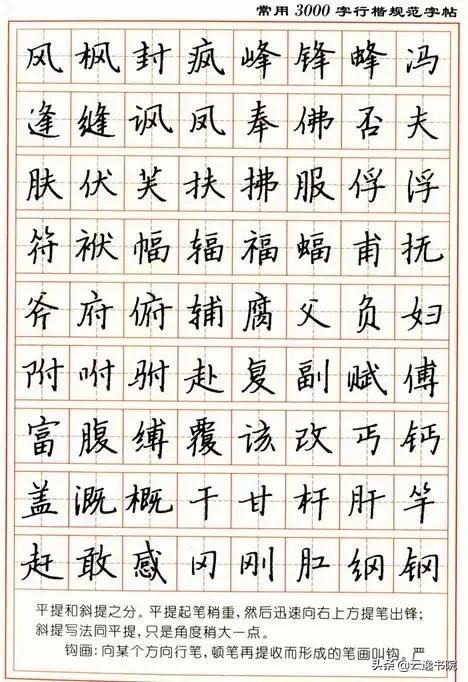 常用3000字行楷规范字帖
风枫封疯峰锋蜂冯
逢缝讽凤奉佛否夫
肤伏芙扶拂服俘浮
符袱幅辐福蝠甫抚
斧府俯辅腐父负妇
附咐驸赴复副赋傅
富腹缚覆该改丐钙
盖溉概干甘杆肝竿
赶敢感冈刚肛纲钢
平提和斜提之分。平提起笔稍重,然后迅速向右上方提笔出锋;
斜提写法同平提,只是角度稍大一点。
钩画:向某个方向行笔,顿笔再提收而形成的笔画叫钩。严
头条@云逸书院